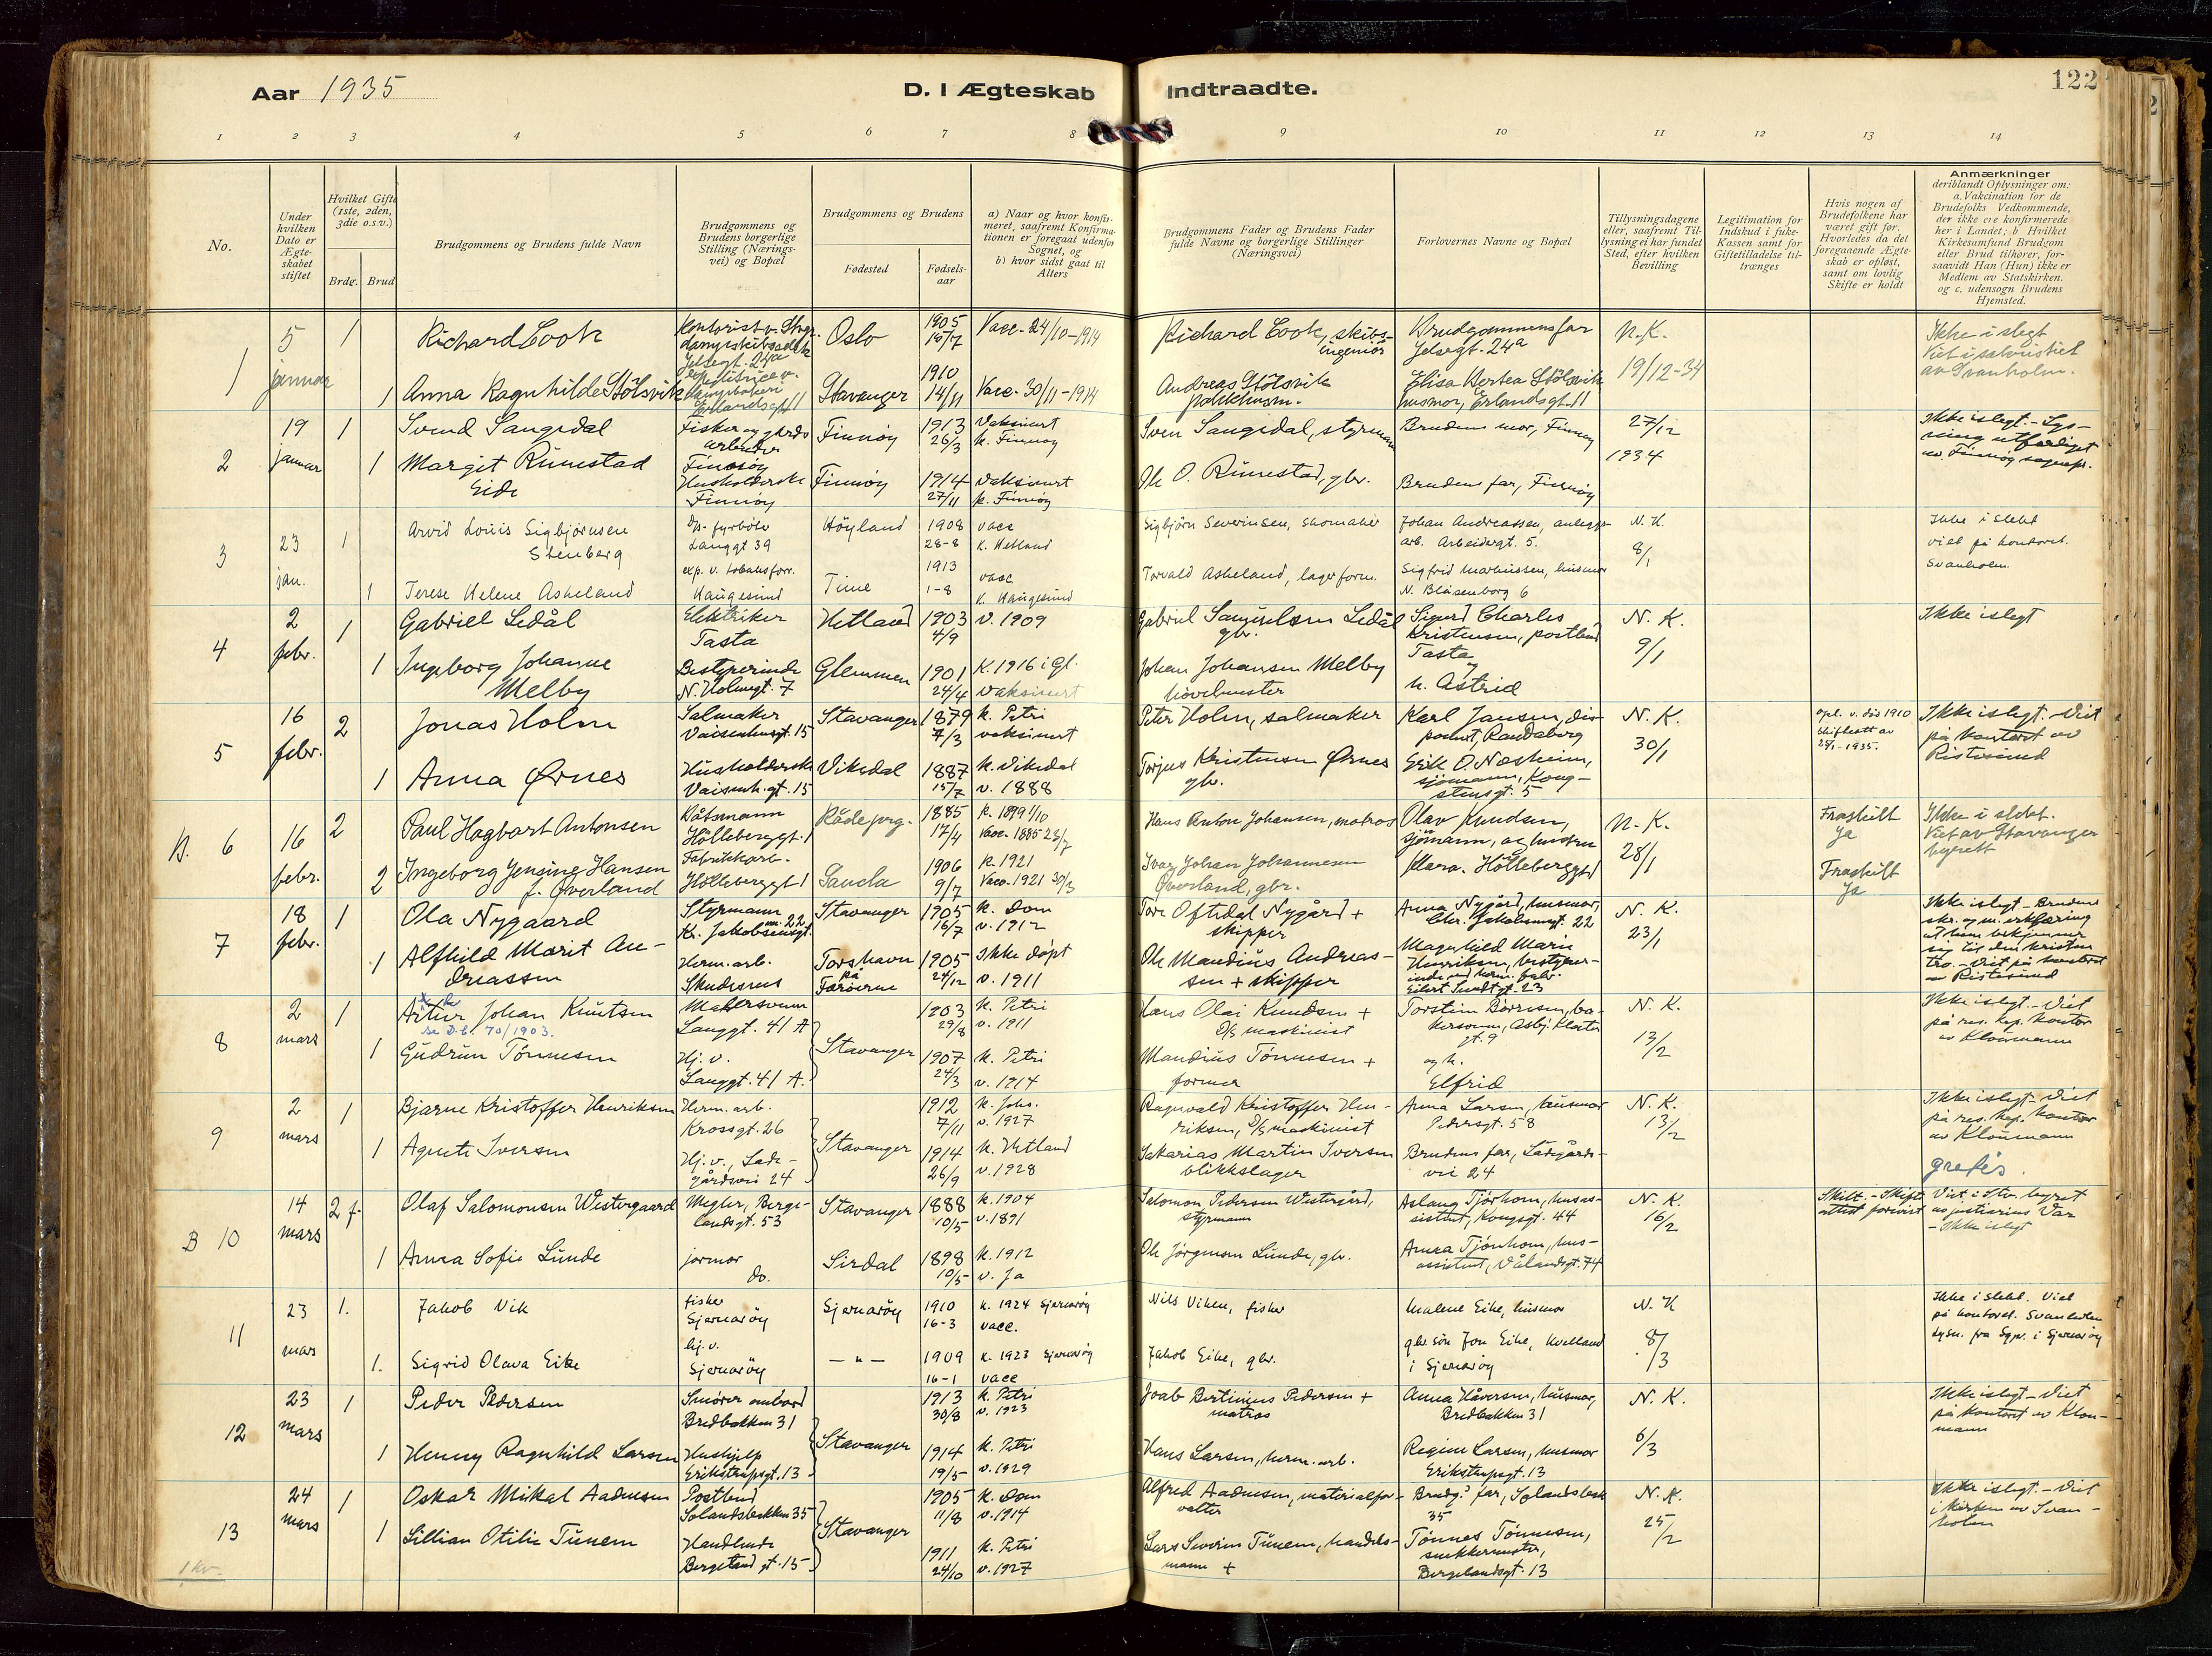 Aar 1935
D. I Ægteskab Indtraadte.
122
1 2 3 4 5 6 7 8 9 10 11 12 13 14
No.
Under hvilken Dato er Ægteskabet stiftet
Hvilket Gifte (1ste, 2den, 3die o.s.v.)
Brdg. Brud
Brudgommens og Brudens fulde Navn
Brudgommens og Brudens borgerlige Stilling (Næringsvei) og Bopæl
Brudgommens og Brudens
Fødested
Fødselsaar
a) Naar og hvor konfirmeret, saafremt Konfirmationen er foregaat udenfor Sognet, og b) hvor sidst gaat til Alters
Brudgommens Fader og Brudens Fader fulde Navne og borgerlige Stillinger (Næringsvei)
Forlovernes Navne og Bopæl
Tillysningsdagene eller, saafremt Tillysning ei har fundet Sted, efter hvilken Bevilling
Legitimation for Indskud i Enke-Kassen samt for Giftetilladelse tiltrænges
Hvis nogen af Brudefolkene har været gift før. Hvorledes da det foregaaende Ægteskab er opløst, samt om lovlig Skifte er holdt
Anmærkninger
deriblandt Oplysninger om: a. Vakcination for de Brudefolks Vedkommende, der ikke ere konfirmerede her i Landet; b Hvilket Kirkesamfund Brudgom eller Brud tilhører, forsaavidt Han (Hun) ikke er Medlem av Statskirken. og c. udensogn Brudens Hjemsted.
1 5 januar
1 Richard Cook
Jelsegt. 24a
Oslo 1905 15/7 Vacc. 24/10-1914
Richard Cook, skibsingeniør
Brudgommens far Jelsegt. 24a
N.K. 19/12-34
Ikke i slegt
av Svanholm.
1 Anna Ragnhilde Stölsvik
Erlandsgt 11
Stavanger 1910 14/11 Vacc. 30/11-1914
Andreas Stölsvik pakkhusm.
Elisa Bertea Stölsvik husmor, Erlandsgt. 11
2 19 januar
1 Svend Sangedal
Finnöy 1913 26/3 Vaksinert k. Finnöy
Sven Sangedal, styrmann
Brudens mor, Finnöy
27/12 1934
Ikke i slegt. - Lysning utferdiget av Finnöy sognepr.
1 Margit Runestad Eide
Husholderske Finnöy
Finnöy 1914 27/11 Vaksinert k. Finnöy
Ole O. Runestad, gbr.
Brudens far, Finnöy
3 23 jan.
1 Arvid Louis Sigbjörnsen Stenberg
Dp. fyrböter Langgt 39
Höyland 1908 28-8 vacc k. Hetland
Sigbjörn Severinsen, skomaker
Johan Andreassen, anleggsarb. Arbeidergt. 5.
N. K. 8/1
Ikke i slekt viet på kontoret. Svanholm.
1 Terese Helene Askeland
exp. v. tobaksforr. Haugesund
Time 1913 1-8 vacc k. Haugesund
Torvald Askeland, lagerform.
Sigfrid Markussen, husmor N. Blåsenborg 6
4 2 febr.
1 Gabriel Ledål
Elektriker Tasta
Hetland 1903 4/9 v. 1909
Gabriel Samuelsen Ledål gbr.
Sigurd Charles Kristensen, postbud Tasta og h. Astrid
N. K. 9/1
Ikke i slegt
1 Ingeborg Johanne Melby
Bestyrerinde N. Holmegt. 7
Glemmen 1901 24/4 K. 1916 i Gl. vaksinert
Johan Johansen Melby hövelmester
5 16 febr.
2 Jonas Holm
Salmaker Vaisenhusgt. 15
Stavanger 1879 7/3 k. Petri vaksinert
Peter Holm, salmaker
Karl Jansen, disponent, Randaberg
N. K. 30/1
opl. v. död 1910 skifteatt av 25/1-1935.
Ikke i slegt. Viet på kontoret av Ristesund
1 Anna Ørnes
Husholderske Vaisenh.gt. 15
Vikedal 1887 15/7 k. Vikedal v. 1888
Torjus Kristensen Ørnes gbr.
Erik O. Næsheim, sjömann, Kongstensgt. 5
B. 6 16 febr.
2 Paul Hagbart Antonsen
Båtsmann Hölleberggt. 1
Råde prg. 1885 17/4 k. 1899 1/10 Vacc. 1885 23/7
Hans Anton Johansen, matros
Olav Knudsen, sjömann, og hustru Klara. Hölleberggt 1
N. K. 28/1
Fraskilt Ja
Ikke i slekt. Viet av Stavanger byrett
2 Ingeborg Jensine Hansen f. Överland
Fabrikkarb. Hölleberggt 1
Sauda 1906 9/7 k. 1921 Vacc. 1921 30/3
Ivar Johan Johannesen Överland, gbr.
Fraskilt Ja
7 18 febr.
1 Ola Nygaard
Styrmann Kr. Jakobsensgt. 22
Stavanger 1905 16/7 k. Dom v. 1912
Tore Oftedal Nygård + skipper
Anna Nygård, husmor, Chr. Jakobsensgt. 22
N. K. 23/1
Ikke i slegt - Brudens skr. og m. erklæring at hun bekjenner sig til den kristne tro. - Viet på kontoret av Ristesund
1 Alfhild Marit Andreassen
Herm. arb. Skudesnes
Torshavn på Færöerne 1905 24/12 Ikke döpt v. 1911
Ole Mandius Andreassen + skipper
Magnhild Marie Henriksen, bestyrerinde ved herm. fabr. Eilert Sundtgt. 23
8 2 mars
1 Artur Johan Knutsen
se D.b. 70/1903.
Malersvenn Langgt. 41 A
Stavanger 1903 29/8 k. Petri v. 1911
Hans Olai Knudsen + D/s maskinist
Torstein Börresen, bakersvenn, Asbj. Klostergt. 9 og h. Elfrid
N. K. 13/2
Ikke i slegt - Viet på res. kap. kontor av Kloumann
1 Gudrun Tönnesen
Hj. v. Langgt. 41 A.
1907 24/3 k. Petri v. 1914
Mandius Tönnesen + former
9 2 mars
1 Bjarne Kristoffer Henriksen
Herm. arb. Krossgt. 26
Stavanger 1912 7/11 k. Johs. v. 1927
Ragnvald Kristoffer Henriksen, D/s maskinist
Anna Larsen, husmor Pedersgt. 58
N. K. 13/2
Ikke i slegt - Viet på res. kap. kontor av Kloumann
1 Agnete Iversen
Hj. v., Ladegårdsvei 24
1914 26/9 k. Hetland v. 1928
Sakarias Martin Iversen blikkslager
Brudens far, Ladegårdsvei 24
B 10 14 mars
2 f. Olaf Salomonsen Westergaard
Megler, Bergelandsgt. 53
Stavanger 1888 10/5 k. 1904 v. 1891
Salomon Pedersen Westergård, styrmann
Aslaug Tjörhom, husassistent, Kongsgt. 44
N. K. 16/2
Skilt. - Skifteattest forevist
Viet i Stv. byrett av justiarius Var - Ikke i slegt
1 Anna Sofie Lunde
jormor do.
Sirdal 1898 10/5 k. 1912 v. Ja
Ole Jörgensen Lunde, gbr.
Anna Tjörhom, husassistent, Vålandsgt. 74
11 23 mars
1. Jakob Vik
fisker Sjernaröy
Sjernaröy 1910 16-3 k. 1924 Sjernaröy vacc.
Nils Viken, fisker
Malene Eike, husmor
N. K 8/3
Ikke i slekt. Viet på kontoret. Svanholm Lysn. fra Sgpr. i Sjernaröy
1. Sigrid Olava Eike
hj. v. Sjernaröy
— " — 1909 16-1 k. 1923 Sjernaröy vacc
Jakob Eike, gbr.
gbr.sön Jon Eike, Kvelland i Sjernaröy
12 23 mars
1 Peder Pedersen
Smörer ombord Bredbakken 31
Stavanger 1913 30/8 k. Petri v. 1923
Joab Bertinius Pedersen + matros
Anna Håversen, husmor, Bredbakken 31
N. K. 6/3
Ikke i slegt - Viet på kontoret av Kloumann
1 Henny Ragnhild Larsen
Hushjelp Erikstrupsgt. 13
1914 19/5 k. Petri v. 1929
Hans Larsen, herm. arb.
Regine Larsen, husmor Erikstrupsgt. 13
13 24 mars
1 Oskar Mikal Aadnesen
Postbud Solandsbakken 35
Stavanger 1905 11/8 k. Dom v. 1914
Alfred Aadnesen, materialforvalter
Brudg.s far, Solandsbakk 35
N. K. 25/2
Ikke i slegt. - Viet i kirken av Svanholm
1 Lillian Otilie Tunem
Handlende Bergeland gt. 15
1911 24/10 k. Petri v. 1927
Lars Severin Tunem, handelsmann +
Tönnes Tönnesen, snekkermester, Bergelandsgt. 13
1 kv.